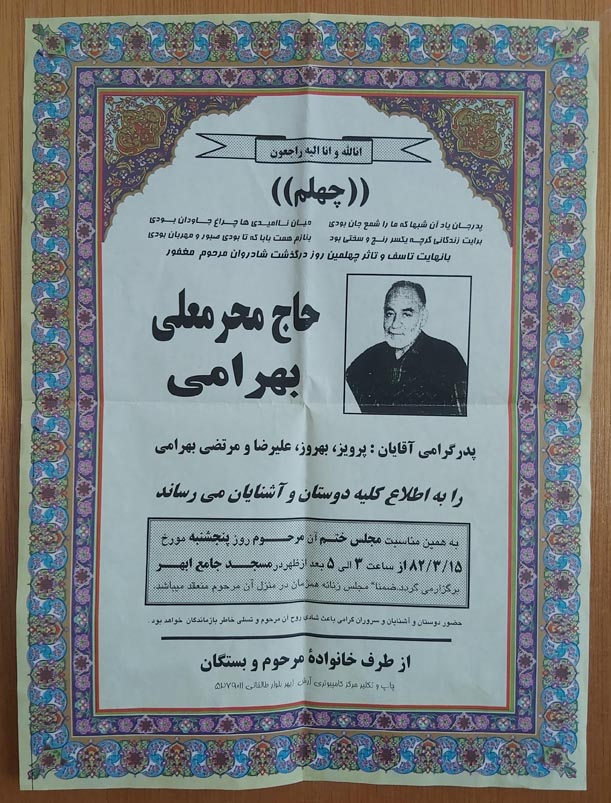 انالله و انا الیه راجعون
((چهلم))
پدرجان یاد آن شبها که ما را شمع جان بودی میان ناامیدی ها چراغ جاودان بودی
برایت زندگانی گرچه یکسر رنج و سختی بود بنازم همت بابا که تا بودی صبور و مهربان بودی
بانهایت تاسف و تاثر چهلمین روز درگذشت شادروان مرحوم مغفور
حاج محرمعلی
بهرامی
پدرگرامی آقایان : پرویز، بهروز، علیرضا و مرتضی بهرامی
را به اطلاع کلیه دوستان و آشنایان می رساند
به همین مناسبت مجلس ختم آن مرحوم روز پنجشنبه مورخ
۸۲/۳/۱۵ از ساعت ۳ الی ۵ بعد ازظهر در مسجد جامع ابهر
برگزارمی گردد.ضمنا" مجلس زنانه همزمان در منزل آن مرحوم منعقد میباشد.
حضور دوستان و آشنایان و سروران گرامی باعث شادی روح آن مرحوم و تسلی خاطر بازماندگان خواهد بود .
از طرف خانوادۀ مرحوم و بستگان
چاپ و تکثیر مرکز کامپیوتری آرش ابهر بلوار طالقانی ۵۲۷۹۰۱۱